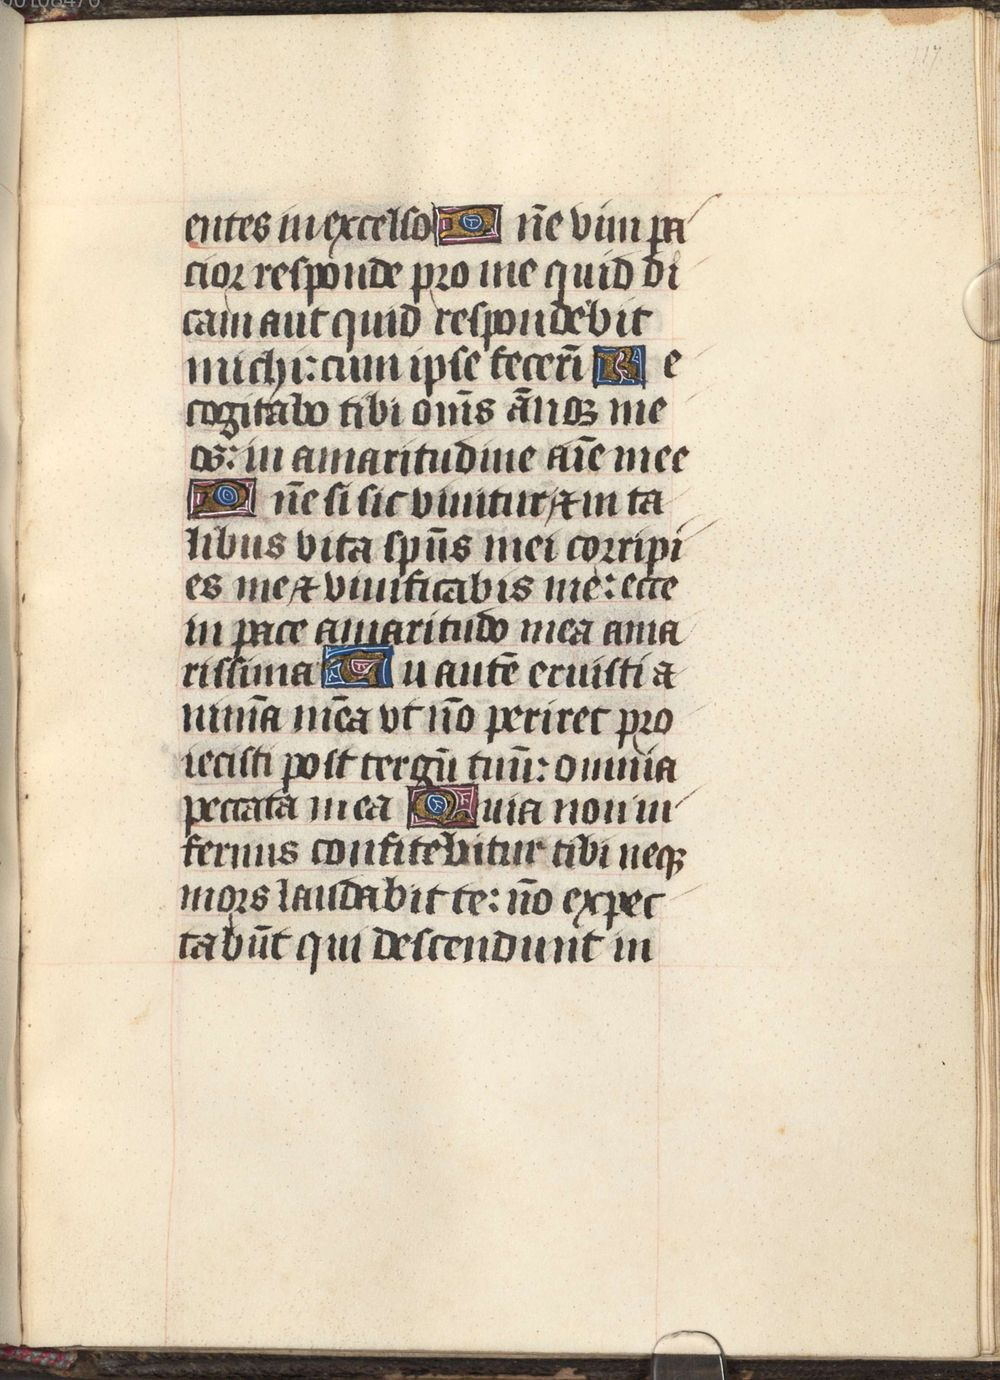 117
entes in excelso D n̄e vim pa
cior responde pro me quid di
cam aut quid respondebit
michi: cum ipse fecer̄i R e
cogitabo tibi om̄s ān̄oꝝ me
os: in amaritudine aīe mee
D n̄e si sic vivitur ⁊ in ta
libus vita sp̄us mei corripi
es me ⁊ vivificabis me: ecce
in pace amaritudo mea ama
rissima T u autē eruisti a
nimā meā vt nō periret pro
iecisti post tergū tuū: omnia
peccata mea Q uia non in
fernus confitebitur tibi neqꝫ
mors laudabit te: nō expec
tabūt qui descendunt in